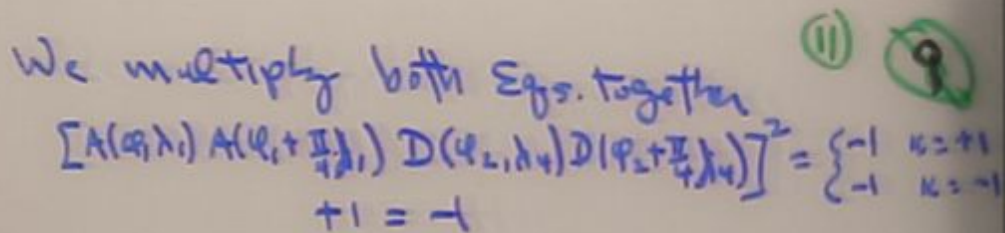 ⑪ 9
We multiply both Eqs. together
[A(φ₁λ₁) A(φ₁+π/4,λ₁) D(φ₂,λ₄)D(φ₂+π/4,λ₄)]² = {-1 κ=+1
-1 κ=-1
+1 = -1